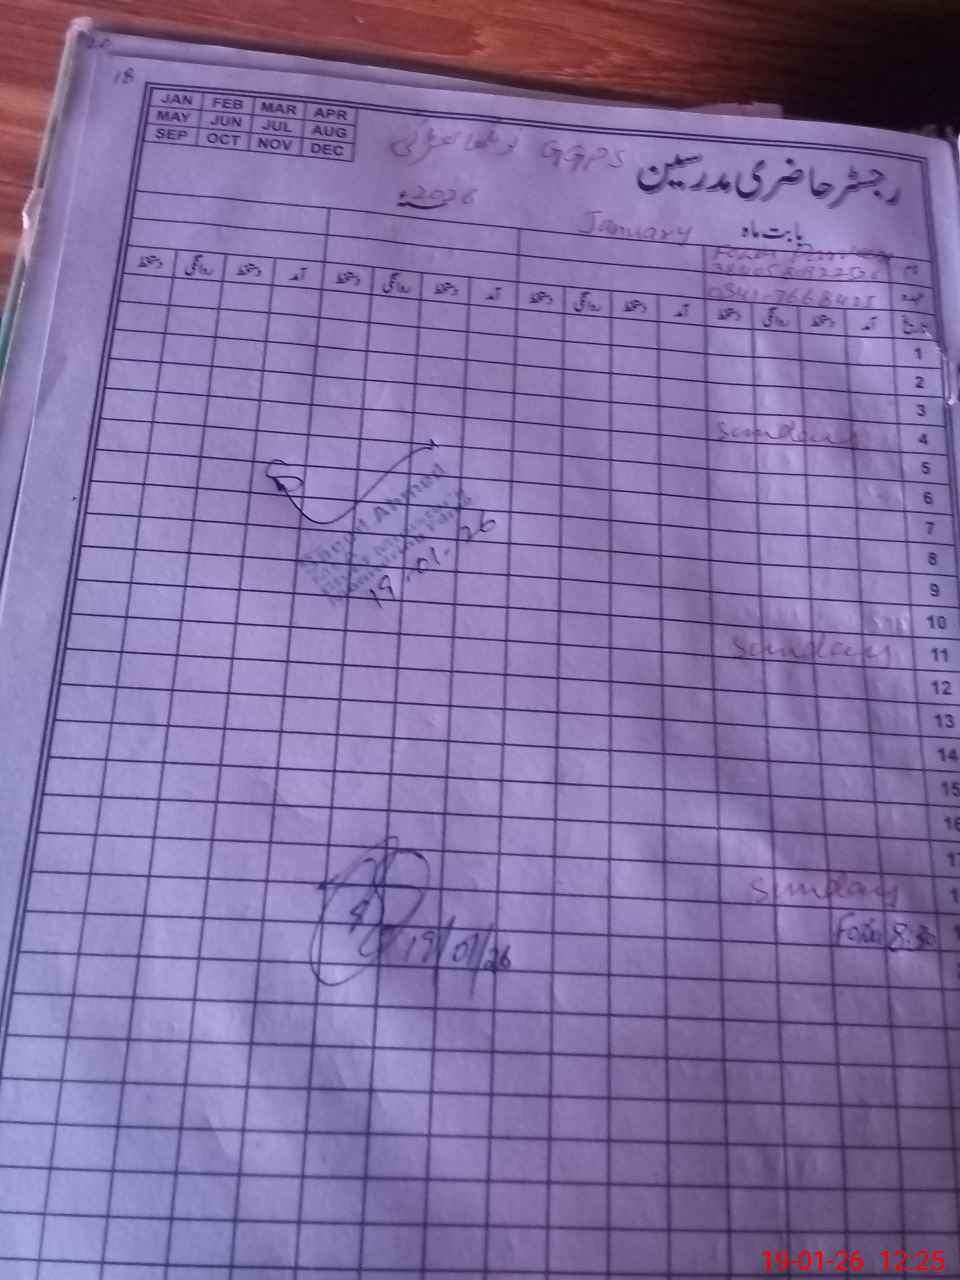 18
JAN FEB MAR APR
MAY JUN JUL AUG
SEP OCT NOV DEC
رجسٹر حاضری مدرسین
GGPS
2026ء
بابت ماہ January
نام
عہدہ
0341-7668425
تاریخ آمد دستخط روانگی دستخط آمد دستخط روانگی دستخط آمد دستخط روانگی دستخط آمد دستخط روانگی دستخط
1
2
3
4 Sunday
5
6
7
8
9
10
11 Sunday
12
13
14
15
16
Sunday
Fozia 8:30
Ahmed
19-01-26
19/01/26
19-01-26 12:25